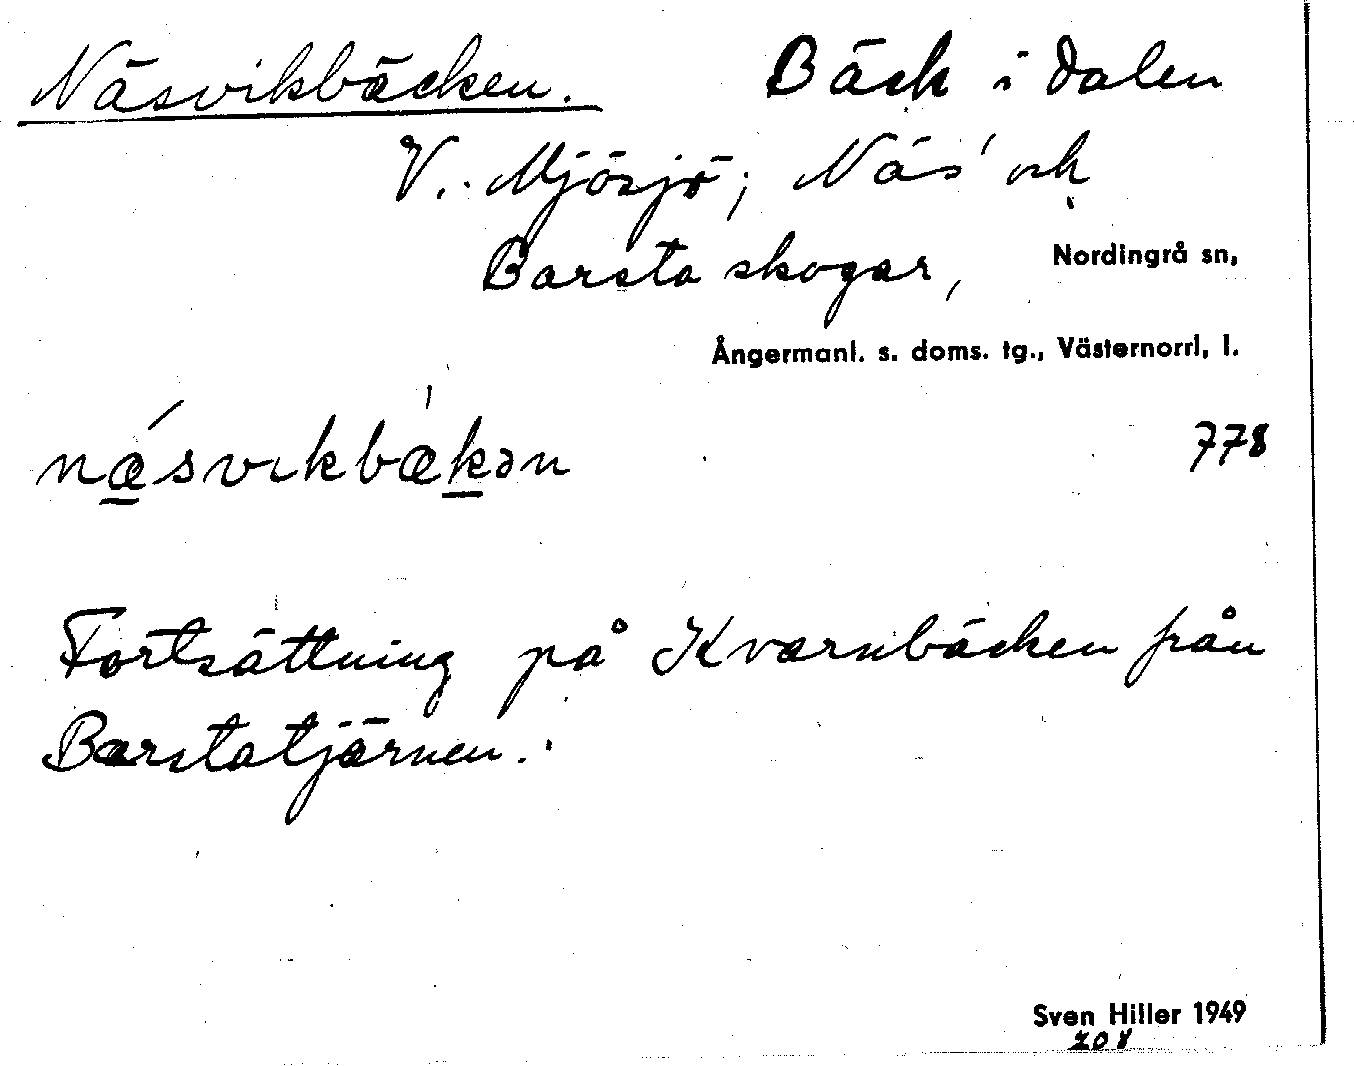 Näsvikbäcken. Bäck i dalen
V. Mjösjö, Näs' och
Barsta skogar, Nordingrå sn,
Ångermanl. s. doms. tg., Västernorrl. l.
næ´svikbæ`kən 778
Fortsättning på Kvarnbäcken från
Barstatjärnen.
Sven Hiller 1949
208